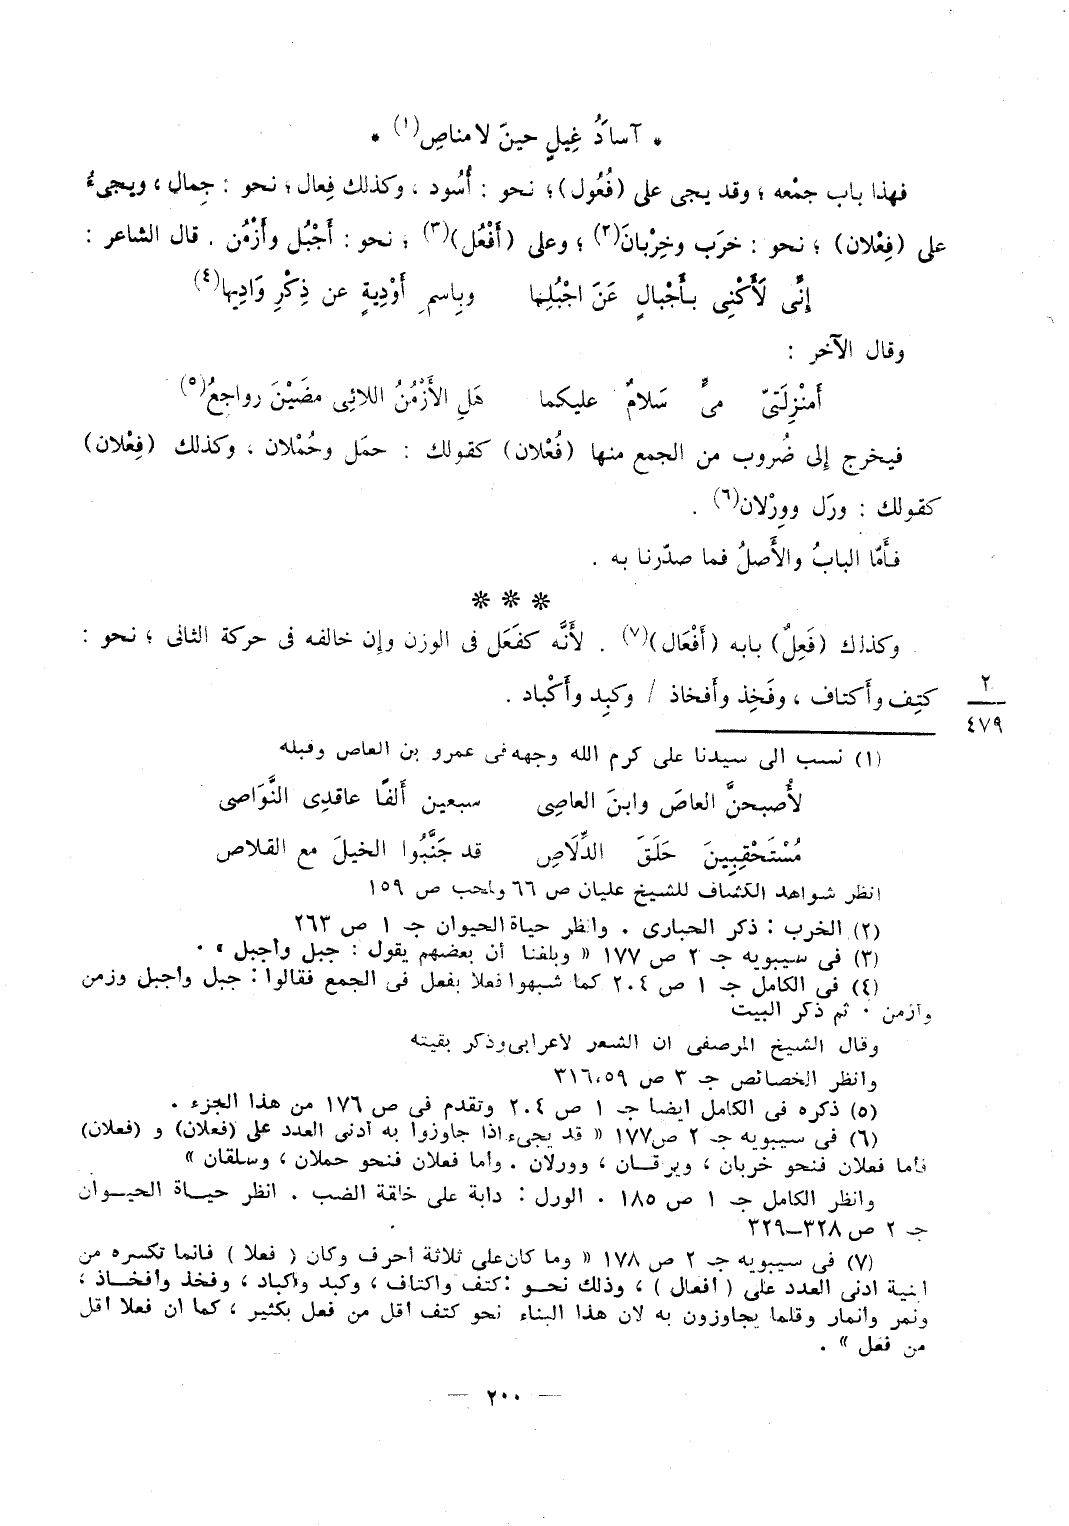 * آسادُ غِيلٍ حينَ لا مناصِ(١) *
فهذا باب جمْعه ؛ وقد يجى على (فُعُول)؛ نحو : أُسُود ، وكذلك فِعال ؛ نحو : جِمال ، ويجىءُ
على (فِعْلان) ؛ نحو : خَرَب وخِرْبانَ(٢) ؛ وعلى (أَفْعُل)(٣) ؛ نحو : أَجْبُل وأَزْمُن . قال الشاعر :
إِنِّى لَأَكْنِى بأَجْبالٍ عَنَ اجْبُلِها وبِاسمِ أَوْدِيةٍ عن ذِكْرِ وَادِيها(٤)
وقال الآخر :
أَمنْزِلَتَىّ مىٍّ سَلامٌ عليكما هَلِ الأَزْمُنُ اللائِى مضَيْنَ رواجِعُ(٥)
فيخرج إلى ضُروب من الجمع منها (فُعْلان) كقولك : حمَل وحُمْلان ، وكذلك (فِعْلان)
كقولك : ورَل ووِرْلان(٦) .
فأَمّا البابُ والأَصلُ فما صدّرنا به .
* * *
وكذلك (فَعِلٌ) بابه (أَفْعَال)(٧) . لأَنَّه كفَعَل فى الوزن وإن خالفه فى حركة الثانى ؛ نحو :
كتِف وأَكتاف ، وفَخِذ وأَفخاذ / وكبِد وأَكْباد .
٢
٤٧٩
(١) نسب الى سيدنا على كرم الله وجهه فى عمرو بن العاص وقبله
لأُصبحنَّ العاصَ وابنَ العاصِى سبعين أَلفًا عاقدِى النَّوَاصِى
مُسْتَحْقِبِينَ حَلَقَ الدِّلَاصِ قد جَنَّبُوا الخيلَ مع القلاص
انظر شواهد الكشاف للشيخ عليان ص ٦٦ والمحب ص ١٥٩
(٢) الخرب : ذكر الحبارى . وانظر حياة الحيوان جـ ١ ص ٢٦٣
(٣) فى سيبويه جـ ٢ ص ١٧٧ « وبلغنا أن بعضهم يقول : جبل وأجبل » .
(٤) فى الكامل جـ ١ ص ٢٠٤ كما شبهوا فعلا بفعل فى الجمع فقالوا : جبل وأجبل وزمن
وأزمن . ثم ذكر البيت
وقال الشيخ المرصفى ان الشعر لأعرابى وذكر بقيته
وانظر الخصائص جـ ٣ ص ٥٩،٣١٦
(٥) ذكره فى الكامل أيضا جـ ١ ص ٢٠٤ وتقدم فى ص ١٧٦ من هذا الجزء .
(٦) فى سيبويه جـ ٢ ص١٧٧ « قد يجىء اذا جاوزوا به أدنى العدد على (فعلان) و (فعلان)
فأما فعلان فنحو خربان ، وبرقــان ، وورلان . وأما فعلان فنحو حملان ، وسلقان »
وانظر الكامل جـ ١ ص ١٨٥ . الورل : دابة على خلقة الضب . انظر حيــاة الحيــوان
جـ ٢ ص ٣٢٨–٣٢٩
(٧) فى سيبويه جـ ٢ ص ١٧٨ « وما كان على ثلاثة أحرف وكان ( فعلا ) فانما تكسره من
ابنية أدنى العدد على ( أفعال ) ، وذلك نحــو : كتف وأكتاف ، وكبد وأكباد ، وفخذ وأفخــاذ ،
ونمر وأنمار وقلما يجاوزون به لأن هذا البناء نحو كتف أقل من فعل بكثير ، كما ان فعلا أقل
من فعل » .
— ٢٠٠ —